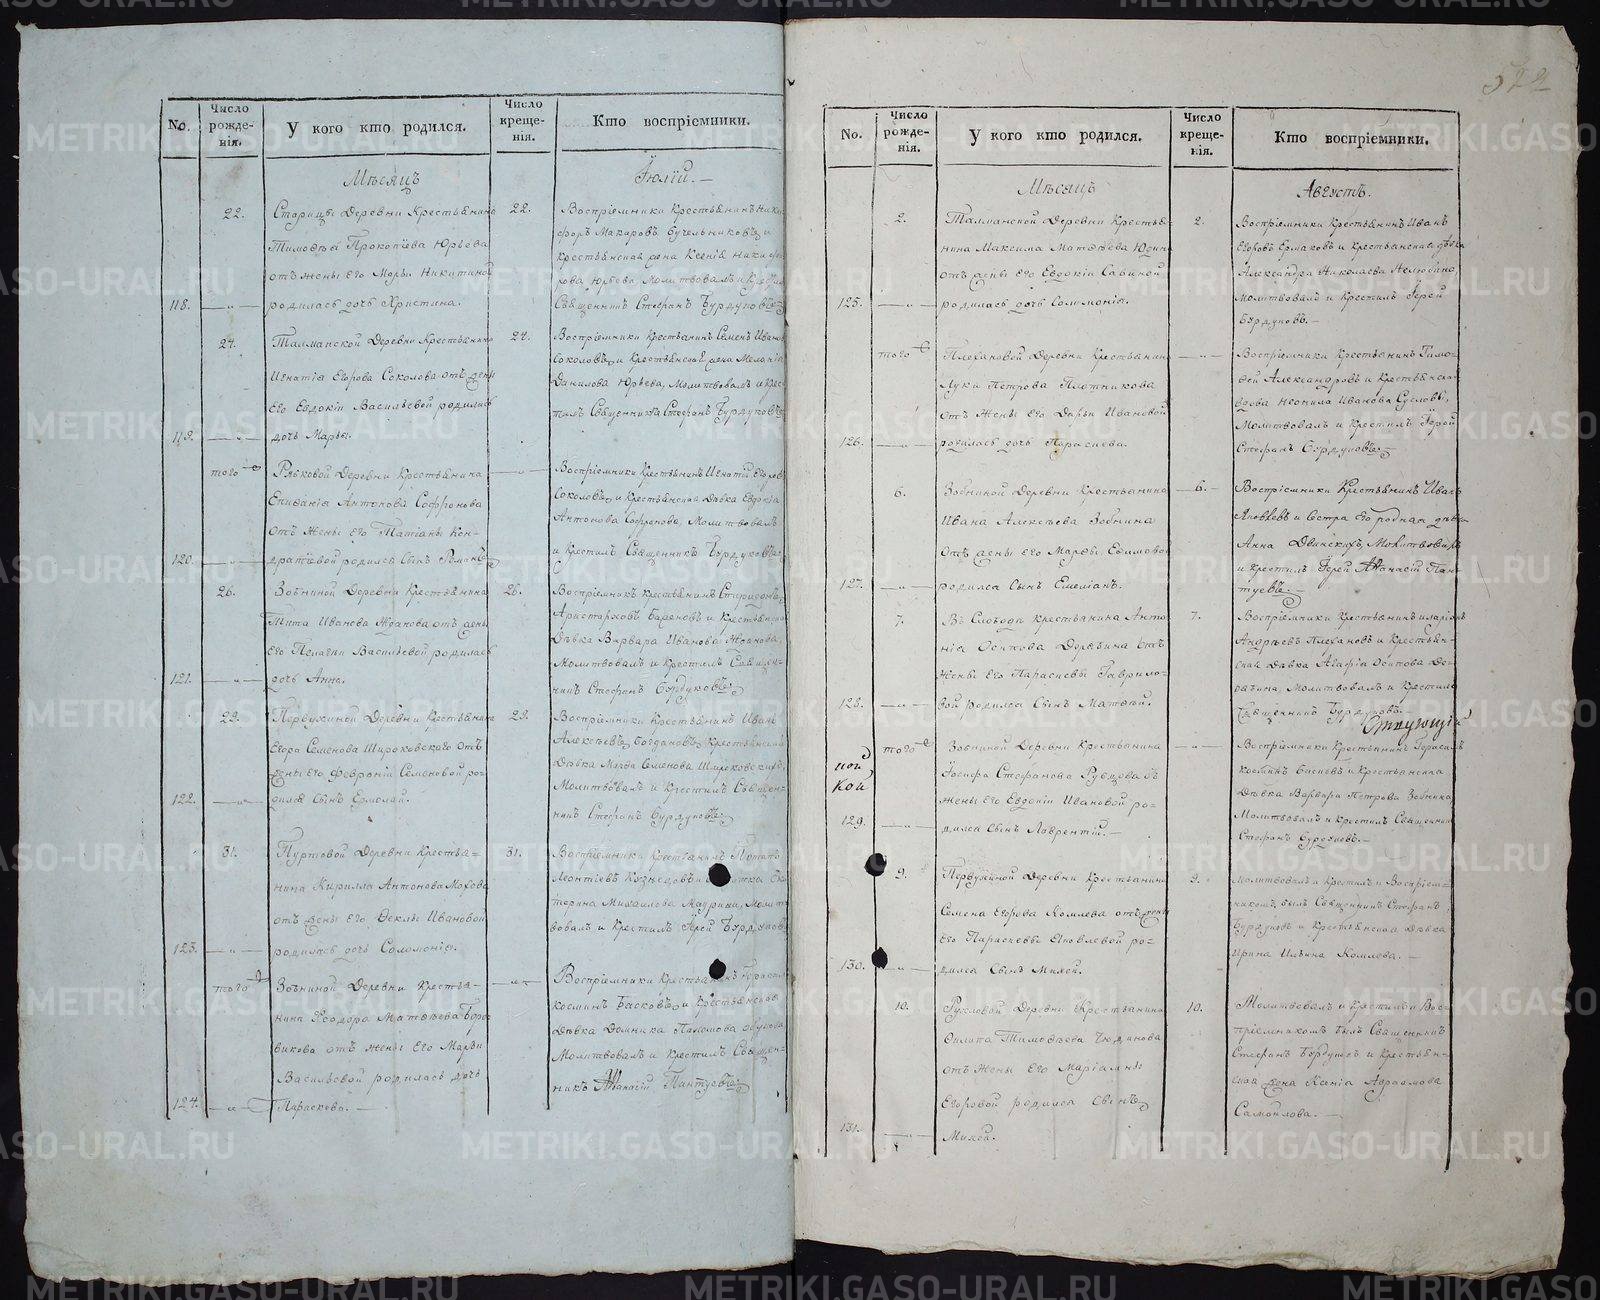 522
No.
Число рожде-нія.
У кого кто родился.
Число креще-нія.
Кто воспріемники.
Мѣсяцъ
Іюлій.
22.
Старицы Деревни Крестьянина
Тимоѳѣя Прокопіева Юрьева
отъ жены его Марьи Никитиной
118.
родилась дочь Христина.
22.
Воспріемники Крестьянинъ Ники-
форъ Макаровъ Бучельниковъ и
крестьянская жена Ксенія Никифо-
рова Юрьева, Молитвовалъ и Крестилъ
Священникъ Стефанъ Бурдуковъ
24.
Талманской Деревни Крестьянина
Игнатія Егорова Соколова отъ жены
его Евдокіи Васильевой родилась
119.
дочь Марья.
24.
Воспріемники Крестьянинъ Семенъ Иванов
Соколовъ и Крестьянская жена Меланія
Данилова Юрьева, Молитвовалъ и Крес-
тилъ Священникъ Стефанъ Бурдуковъ
того
Рябковой Деревни Крестьянина
Епифанія Антонова Софронова
отъ жены его Татіаны Кон-
120.
дратьевой родился сынъ Романъ
Воспріемники Крестьянинъ Игнатій Егоровъ
Соколовъ и Крестьянская дѣвка Евдокія
Антонова Софронова, Молитвовалъ
и Крестилъ Священникъ Бурдуковъ
26.
Зобниной Деревни Крестьянина
Тита Иванова Жданова отъ жены
его Пелагеи Васильевой родилась
121.
дочь Анна.
26.
Воспріемники крестьянинъ Спиридонъ
Аристарховъ Баженовъ и Крестьянска
дѣвка Варвара Иванова Жданова,
Молитвовалъ и Крестилъ Священ-
никъ Стефанъ Бурдуковъ
29.
Первухиной Деревни Крестьянина
Егора Семенова Широковскаго отъ
жены его Февроніи Семеновой ро-
122.
дился сынъ Ермолай.
29.
Воспріемники Крестьянинъ Иванъ
Алексѣевъ Богдановъ Крестьянская
Дѣвка Марѳа Семенова Широковскихъ,
Молитвовалъ и Крестилъ Священ-
никъ Стефанъ Бурдуковъ
31.
Пуртовой Деревни Крестья-
нина Кирилла Антонова Мохова
отъ жены его Ѳеклы Ивановой
123.
родилась дочь Соломонія.
31.
Воспріемники Крестьянинъ Потапъ
Леонтіевъ Кузнецовъ и
терина Михаилова Маурина, Молит-
вовалъ и Крестилъ Іерей Бурдуковъ
того
Зобниной Деревни Крестья-
нина Ѳеодора Матвѣева Боро-
викова отъ жены его Марьи
Васильевой родилась дочь
124.
Параскева.
Воспріемники Крестьянинъ Герасимъ
косминъ Басковъ и Крестьянская
Дѣвка Домника Обухова
Молитвовалъ и Крестилъ Священ-
никъ Аѳанасій Пантуевъ
No.
Число рожде-нія.
У кого кто родился.
Число креще-нія.
Кто воспріемники.
Мѣсяцъ
Августъ.
2.
Талманской Деревни Крестья-
нина Максима Матвѣева Юдина
отъ жены его Евдокіи Савиной
125.
родилась дочь Соломонія.
2.
Воспріемники Крестьянинъ Иванъ
Егоровъ Ермаковъ и крестьянская дѣвка
Александра Николаева Нелюбина,
Молитвовалъ и Крестилъ Іерей
Бурдуковъ.
того
Плехановой Деревни Крестьянина
Луки Петрова Плотникова
отъ жены его Дарьи Ивановой
126.
родилась дочь Параскева.
Воспріемники Крестьянинъ Тимо-
ѳей Александровъ и Крестьянская
вдова Неонила Иванова Суслова,
Молитвовалъ и Крестилъ Іерей
Стефанъ Бурдуковъ
6.
Зобниной Деревни Крестьянина
Ивана Алексѣева Зобнина
отъ жены его Марѳы Ефимовой
127.
родился сынъ Емеліанъ.
6.
Воспріемники Крестьянинъ Иванъ
Яковлевъ и сестра его родная дѣвка
Анна Двинскихъ, Молитвовалъ
и крестилъ Іерей Аѳанасій Пан-
туевъ.
7.
Въ Слободѣ Крестьянина Анто-
нія Осипова Дерябина отъ
жены его Параскевы Гаврило-
128.
вой родился сынъ Матѳей.
7.
Воспріемники Крестьянинъ Иларіонъ
Андрѣевъ Плехановъ и Крестьян-
ская дѣвка Агафія Осипова Де-
рябина, Молитвовалъ и Крестилъ
Священникъ Бурдуковъ.
Стаующій
ной
кой
того
Зобниной Деревни Крестьянина
Іосифа Стефанова Рубцова отъ
жены его Евдокіи Ивановой ро-
129.
дился сынъ Лаврентій.
Воспріемники Крестьянинъ Герасимъ
косминъ Басковъ и Крестьянска
дѣвка Варвара Петрова Зобнина
Молитвовалъ и Крестилъ Священникъ
Стефанъ Бурдуковъ.
9.
Первухиной Деревни Крестьянина
Семена Егорова Комлева отъ жены
его Параскевы Яковлевой ро-
130.
дился сынъ Михей.
9.
Молитвовалъ и Крестилъ и Воспріем-
никомъ былъ Священникъ Стефанъ
Бурдуковъ и Крестьянская Дѣвка
Ирина Ильина Комлева.
10.
Деревни Крестьянина
Филипа Тимоѳѣева Чюдинова
отъ жены его Маріамны
Егоровой родился сынъ
131.
Михей.
10.
Молитвовалъ и Крестилъ и Вос-
пріемникомъ былъ Священникъ
Стефанъ Бурдуковъ и Крестьян-
ская жена Ксенія Авраамова
Самойлова.
METRIKI.GASO-URAL.RU